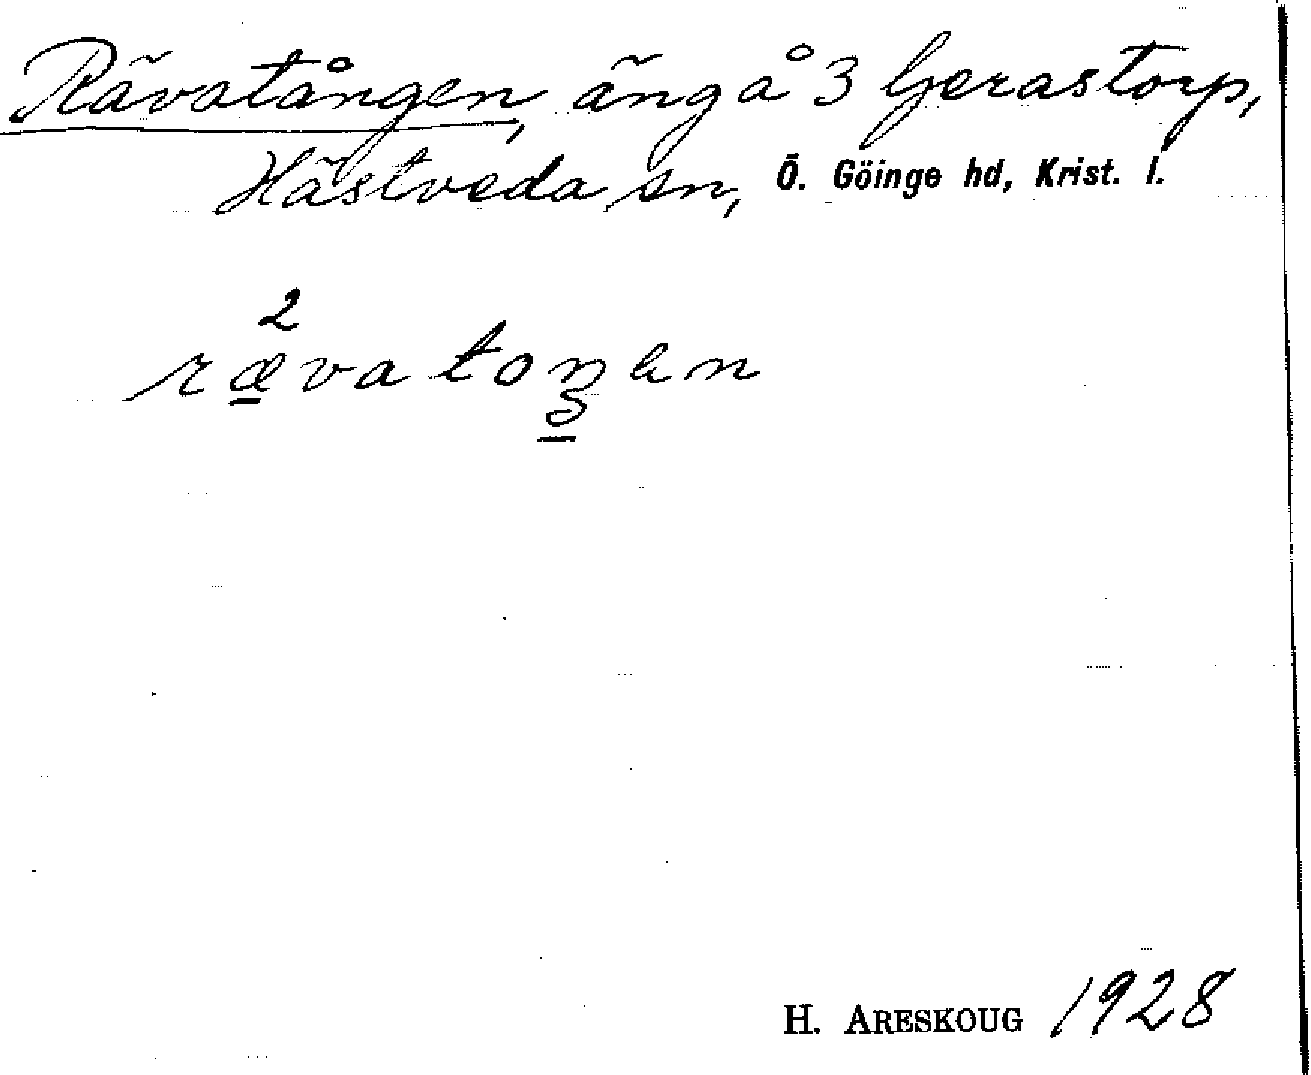 Rävatången, äng å 3 Gerastorp,
Hästveda sn, Ö. Göinge hd, Krist. l.
2
rævatoŋen
H. ARESKOUG 1928